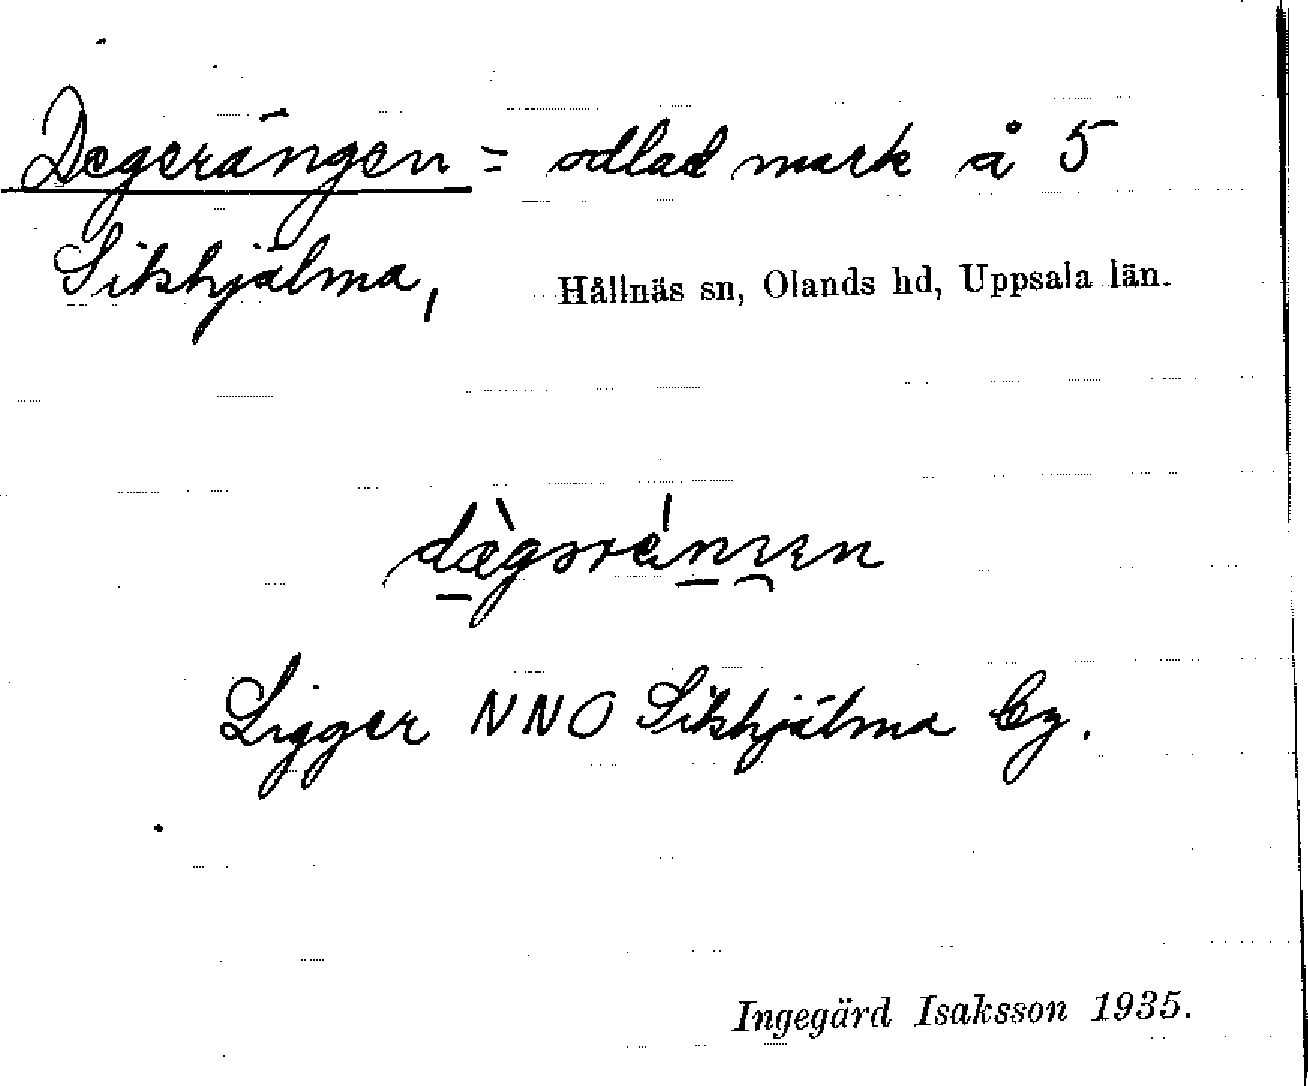 Degerängen = odlad mark å 5
Sikhjälma, Hållnäs sn, Olands hd, Uppsala län.
Ligger NNO Sikhjälma by.
Ingegärd Isaksson 1935.